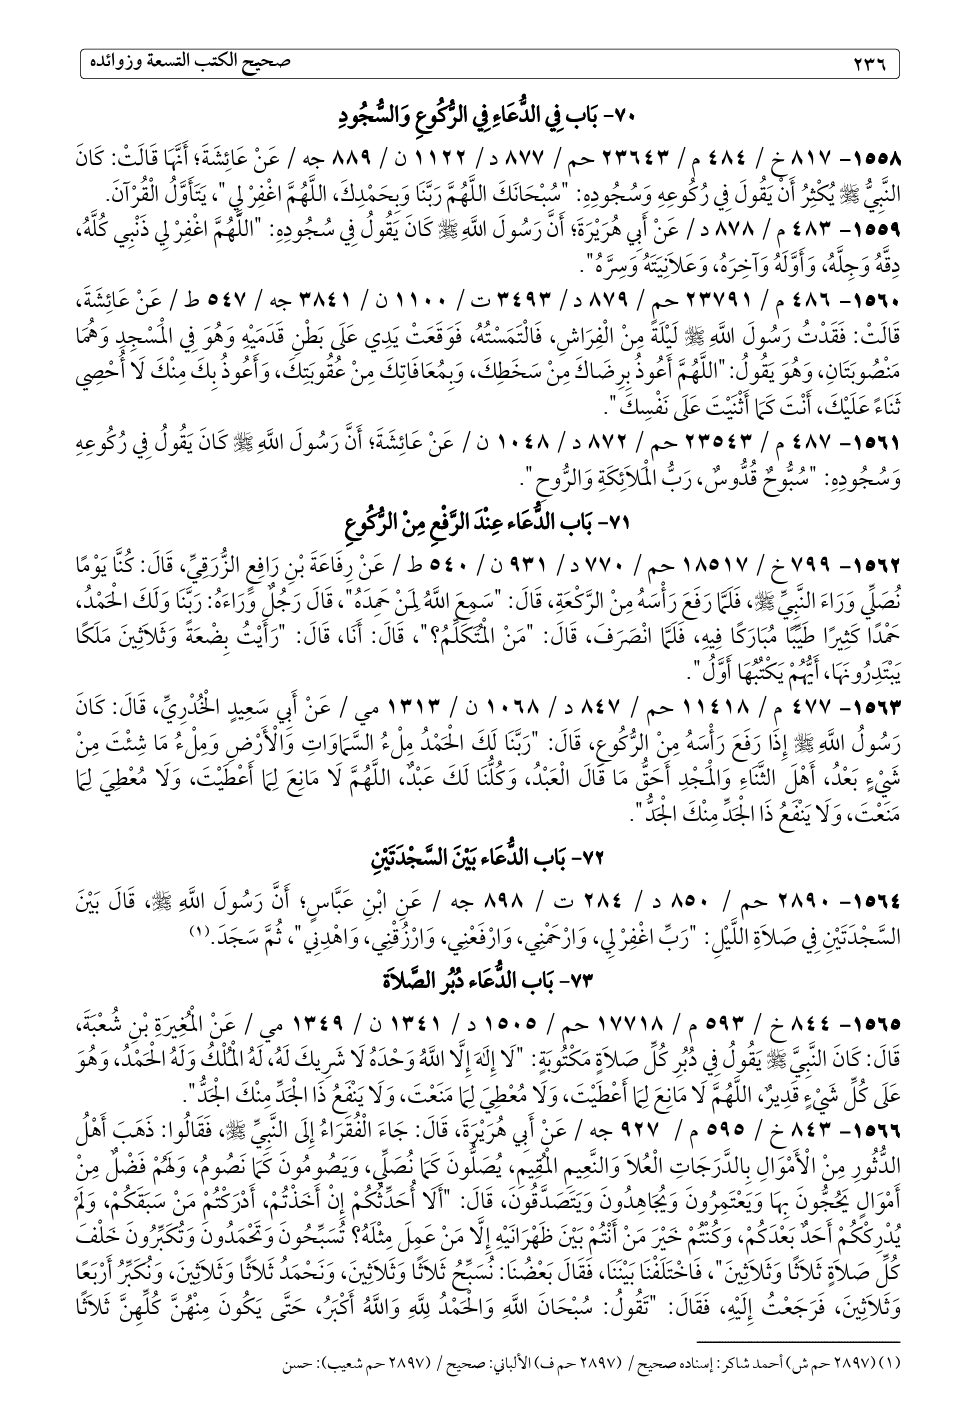 ٢٣٦ صحيح الكتب التسعة وزوائده
٧٠- بَاب فِي الدُّعَاءِ فِي الرُّكُوعِ وَالسُّجُودِ
١٥٥٨- ٨١٧ خ / ٤٨٤ م / ٢٣٦٤٣ حم / ٨٧٧ د / ١١٢٢ ن / ٨٨٩ جه / عَنْ عَائِشَةَ؛ أَنَّهَا قَالَتْ: كَانَ
النَّبِيُّ ﷺ يُكْثِرُ أَنْ يَقُولَ فِي رُكُوعِهِ وَسُجُودِهِ: "سُبْحَانَكَ اللَّهُمَّ رَبَّنَا وَبِحَمْدِكَ، اللَّهُمَّ اغْفِرْ لِي"، يَتَأَوَّلُ الْقُرْآنَ.
١٥٥٩- ٤٨٣ م / ٨٧٨ د / عَنْ أَبِي هُرَيْرَةَ؛ أَنَّ رَسُولَ اللَّهِ ﷺ كَانَ يَقُولُ فِي سُجُودِهِ: "اللَّهُمَّ اغْفِرْ لِي ذَنْبِي كُلَّهُ،
دِقَّهُ وَجِلَّهُ، وَأَوَّلَهُ وَآخِرَهُ، وَعَلَانِيَتَهُ وَسِرَّهُ".
١٥٦٠- ٤٨٦ م / ٢٣٧٩١ حم / ٨٧٩ د / ٣٤٩٣ ت / ١١٠٠ ن / ٣٨٤١ جه / ٥٤٧ ط / عَنْ عَائِشَةَ،
قَالَتْ: فَقَدْتُ رَسُولَ اللَّهِ ﷺ لَيْلَةً مِنْ الْفِرَاشِ، فَالْتَمَسْتُهُ، فَوَقَعَتْ يَدِي عَلَى بَطْنِ قَدَمَيْهِ وَهُوَ فِي الْمَسْجِدِ وَهُمَا
مَنْصُوبَتَانِ، وَهُوَ يَقُولُ: "اللَّهُمَّ أَعُوذُ بِرِضَاكَ مِنْ سَخَطِكَ، وَبِمُعَافَاتِكَ مِنْ عُقُوبَتِكَ، وَأَعُوذُ بِكَ مِنْكَ لَا أُحْصِي
ثَنَاءً عَلَيْكَ، أَنْتَ كَمَا أَثْنَيْتَ عَلَى نَفْسِكَ".
١٥٦١- ٤٨٧ م / ٢٣٥٤٣ حم / ٨٧٢ د / ١٠٤٨ ن / عَنْ عَائِشَةَ؛ أَنَّ رَسُولَ اللَّهِ ﷺ كَانَ يَقُولُ فِي رُكُوعِهِ
وَسُجُودِهِ: "سُبُّوحٌ قُدُّوسٌ، رَبُّ الْمَلَائِكَةِ وَالرُّوحِ".
٧١- بَاب الدُّعَاء عِنْدَ الرَّفْعِ مِنْ الرُّكُوعِ
١٥٦٢- ٧٩٩ خ / ١٨٥١٧ حم / ٧٧٠ د / ٩٣١ ن / ٥٤٠ ط / عَنْ رِفَاعَةَ بْنِ رَافِعٍ الزُّرَقِيِّ، قَالَ: كُنَّا يَوْمًا
نُصَلِّي وَرَاءَ النَّبِيِّ ﷺ، فَلَمَّا رَفَعَ رَأْسَهُ مِنْ الرَّكْعَةِ، قَالَ: "سَمِعَ اللَّهُ لِمَنْ حَمِدَهُ"، قَالَ رَجُلٌ وَرَاءَهُ: رَبَّنَا وَلَكَ الْحَمْدُ،
حَمْدًا كَثِيرًا طَيِّبًا مُبَارَكًا فِيهِ، فَلَمَّا انْصَرَفَ، قَالَ: "مَنْ الْمُتَكَلِّمُ؟"، قَالَ: أَنَا، قَالَ: "رَأَيْتُ بِضْعَةً وَثَلَاثِينَ مَلَكًا
يَبْتَدِرُونَهَا، أَيُّهُمْ يَكْتُبُهَا أَوَّلُ".
١٥٦٣- ٤٧٧ م / ١١٤١٨ حم / ٨٤٧ د / ١٠٦٨ ن / ١٣١٣ مي / عَنْ أَبِي سَعِيدٍ الْخُدْرِيِّ، قَالَ: كَانَ
رَسُولُ اللَّهِ ﷺ إِذَا رَفَعَ رَأْسَهُ مِنْ الرُّكُوعِ، قَالَ: "رَبَّنَا لَكَ الْحَمْدُ مِلْءُ السَّمَاوَاتِ وَالْأَرْضِ وَمِلْءُ مَا شِئْتَ مِنْ
شَيْءٍ بَعْدُ، أَهْلَ الثَّنَاءِ وَالْمَجْدِ أَحَقُّ مَا قَالَ الْعَبْدُ، وَكُلُّنَا لَكَ عَبْدٌ، اللَّهُمَّ لَا مَانِعَ لِمَا أَعْطَيْتَ، وَلَا مُعْطِيَ لِمَا
مَنَعْتَ، وَلَا يَنْفَعُ ذَا الْجَدِّ مِنْكَ الْجَدُّ".
٧٢- بَاب الدُّعَاء بَيْنَ السَّجْدَتَيْنِ
١٥٦٤- ٢٨٩٠ حم / ٨٥٠ د / ٢٨٤ ت / ٨٩٨ جه / عَنِ ابْنِ عَبَّاسٍ؛ أَنَّ رَسُولَ اللَّهِ ﷺ، قَالَ بَيْنَ
السَّجْدَتَيْنِ فِي صَلَاةِ اللَّيْلِ: "رَبِّ اغْفِرْ لِي، وَارْحَمْنِي، وَارْفَعْنِي، وَارْزُقْنِي، وَاهْدِنِي"، ثُمَّ سَجَدَ.(١)
٧٣- بَاب الدُّعَاء دُبُر الصَّلَاةَ
١٥٦٥- ٨٤٤ خ / ٥٩٣ م / ١٧٧١٨ حم / ١٥٠٥ د / ١٣٤١ ن / ١٣٤٩ مي / عَنْ الْمُغِيرَةِ بْنِ شُعْبَةَ،
قَالَ: كَانَ النَّبِيَّ ﷺ يَقُولُ فِي دُبُرِ كُلِّ صَلَاةٍ مَكْتُوبَةٍ: "لَا إِلَهَ إِلَّا اللَّهُ وَحْدَهُ لَا شَرِيكَ لَهُ، لَهُ الْمُلْكُ وَلَهُ الْحَمْدُ، وَهُوَ
عَلَى كُلِّ شَيْءٍ قَدِيرٌ، اللَّهُمَّ لَا مَانِعَ لِمَا أَعْطَيْتَ، وَلَا مُعْطِيَ لِمَا مَنَعْتَ، وَلَا يَنْفَعُ ذَا الْجَدِّ مِنْكَ الْجَدُّ".
١٥٦٦- ٨٤٣ خ / ٥٩٥ م / ٩٢٧ جه / عَنْ أَبِي هُرَيْرَةَ، قَالَ: جَاءَ الْفُقَرَاءُ إِلَى النَّبِيِّ ﷺ، فَقَالُوا: ذَهَبَ أَهْلُ
الدُّثُورِ مِنْ الْأَمْوَالِ بِالدَّرَجَاتِ الْعُلَا وَالنَّعِيمِ الْمُقِيمِ، يُصَلُّونَ كَمَا نُصَلِّي، وَيَصُومُونَ كَمَا نَصُومُ، وَلَهُمْ فَضْلٌ مِنْ
أَمْوَالٍ يَحُجُّونَ بِهَا وَيَعْتَمِرُونَ وَيُجَاهِدُونَ وَيَتَصَدَّقُونَ، قَالَ: "أَلَا أُحَدِّثُكُمْ إِنْ أَخَذْتُمْ، أَدْرَكْتُمْ مَنْ سَبَقَكُمْ، وَلَمْ
يُدْرِكْكُمْ أَحَدٌ بَعْدَكُمْ، وَكُنْتُمْ خَيْرَ مَنْ أَنْتُمْ بَيْنَ ظَهْرَانَيْهِ إِلَّا مَنْ عَمِلَ مِثْلَهُ؟ تُسَبِّحُونَ وَتَحْمَدُونَ وَتُكَبِّرُونَ خَلْفَ
كُلِّ صَلَاةٍ ثَلَاثًا وَثَلَاثِينَ"، فَاخْتَلَفْنَا بَيْنَنَا، فَقَالَ بَعْضُنَا: نُسَبِّحُ ثَلَاثًا وَثَلَاثِينَ، وَنَحْمَدُ ثَلَاثًا وَثَلَاثِينَ، وَنُكَبِّرُ أَرْبَعًا
وَثَلَاثِينَ، فَرَجَعْتُ إِلَيْهِ، فَقَالَ: "تَقُولُ: سُبْحَانَ اللَّهِ وَالْحَمْدُ لِلَّهِ وَاللَّهُ أَكْبَرُ، حَتَّى يَكُونَ مِنْهُنَّ كُلِّهِنَّ ثَلَاثًا
(١) (٢٨٩٧ حم ش) أحمد شاكر: إسناده صحيح / (٢٨٩٧ حم ف) الألباني: صحيح / (٢٨٩٧ حم شعيب): حسن